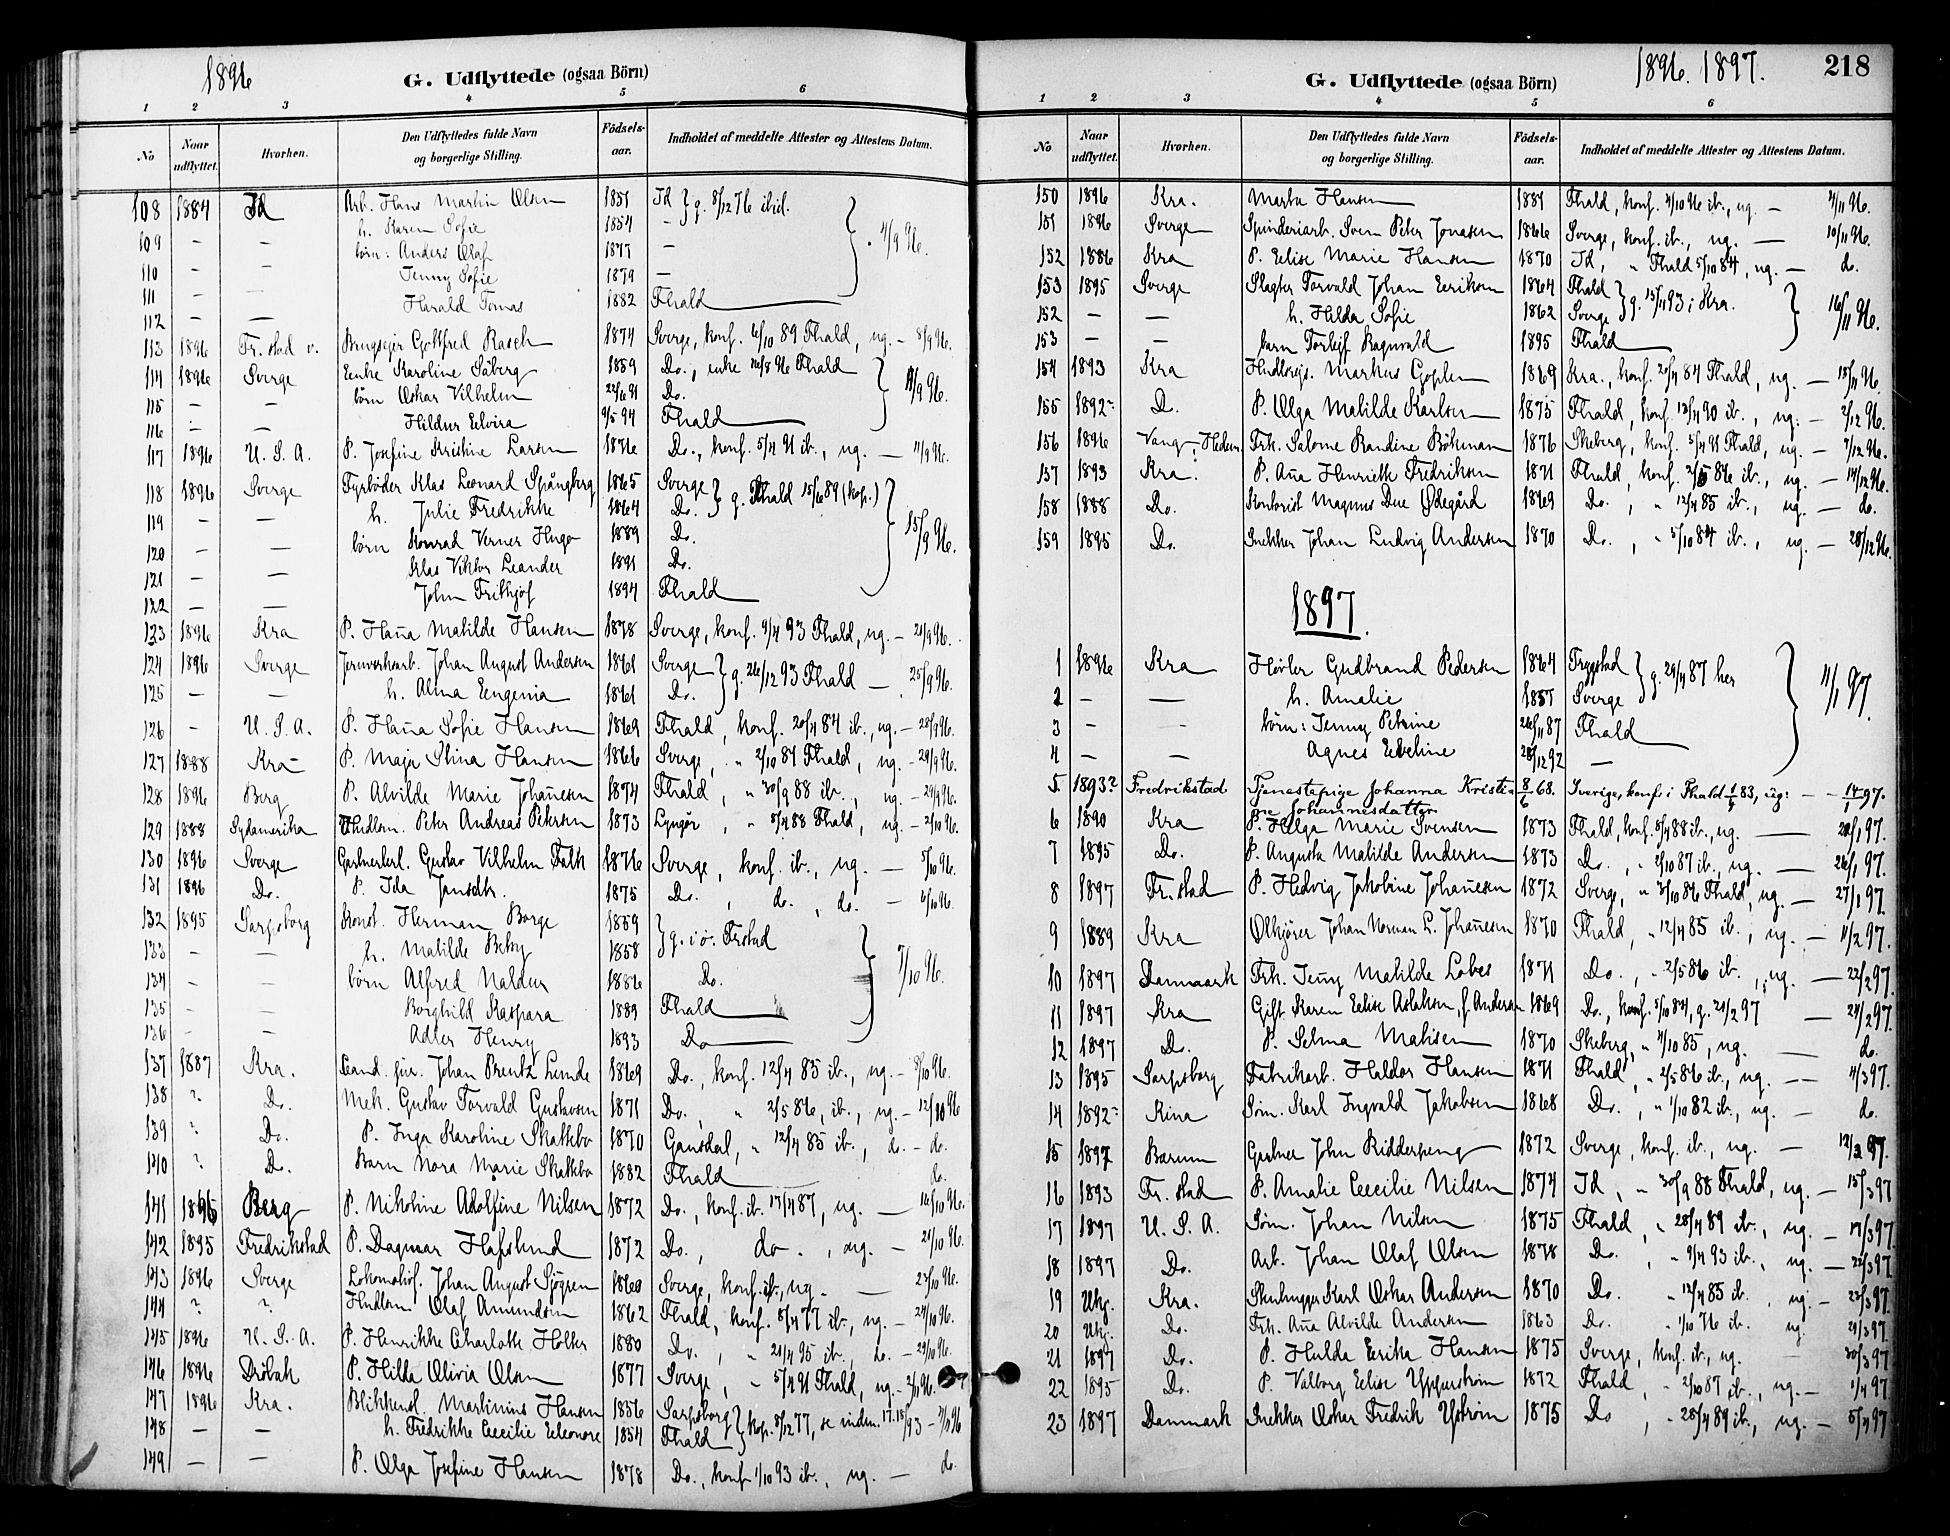 1896
G. Udflyttede (ogsaa Börn)
1 2 3 4 5 6
No Naar udflyttet. Hvorhen. Den Udflyttedes fulde Navn og borgerlige Stilling. Födsels-aar. Indholdet af meddelte Attester og Attestens Datum.
108 1884 Id Arb. Hans Martin Olsen 1851 Id } g. 8/12 76 ibid.
109 — — h. Karen Sofie 1854 — 4/9 96.
110 — — börn: Anders Olaf 1877 —
111 — — Jenny Sofie 1879 —
112 — — Harald Tomas 1882 Fhald
113 1896 Fr.stad v. Gottfred Rasch 1874 Sverge, konf. 6/10 89 Fhald, ug. — 8/9 96.
114 1896 Sverge Enke Karoline Såberg 1859 Do., enke Fhald
115 — — börn Oskar Vilhelm Do.
116 — — Hildur Elvira 9/5 94 Fhald
117 1896 U. S. A. P. Josefine Kristine Larsen 1876 Do., konf. 5/4 91 ib., ug. — 11/9 96.
118 1896 Sverge Fyrbøder Klas Leonard Spångberg 1865 Sverge } g. Fhald 15/6 89 (kop.)
119 — — h. Julie Fredrikke 1864 Do.
120 — — börn Konrad Verner Hugo 1889 Do. 15/9 96.
121 — — Klas Viktor Leander 1891 Do.
122 — — John Fritjof 1894 Fhald
123 1896 Kra P. Hana Matilde Hansen 1878 Sverge, konf. 9/4 93 Fhald, ug. — 21/9 96.
124 1896 Sverge Jernverksarb. Johan August Andersen 1861 Sverge } g. 26/12 93 Fhald — 25/9 96.
125 — — h. Alma Eugenia 1861 Do.
126 — U. S. A. P. Hana Sofie Hansen 1869 Fhald, konf. 20/4 84 ib., ug. — 28/9 96.
127 1888 Kra P. Maja Stina Hansen 1866 Sverge, " 2/10 81 Fhald, ug. — 29/9 96.
128 1896 Berg P. Alvilde Marie Johanesen 1874 Fhald, " 30/9 88 ib., ug. — 29/9 96.
129 1888 Sydamerika Hndlsm. Peter Andreas Petersen 1873 Lyngør, " 8/4 88 Fhald, ug. — 2/10 96.
130 1896 Sverge Gartnerlærl. Gustav Vilhelm Falk 1876 Sverge, konf. ib., ug. — 5/10 96.
131 1896 Do. P. Ida Jansdtr. 1875 Do., do., do. — 6/10 96.
132 1895 Sarpsborg Konst. Herman Borge 1859 } g. i ø. Frstad
133 — — h. Matilde Betsy 1858
134 — — börn Alfred Haldur 1886 Do. 7/10 96.
135 — — Borghild Kaspara 1889 Fhald
136 — — Adler Henry 1893 Do
137 1887 Kra. Cand. jur. Johan Brentz Lunde 1869 Do., konf. 12/4 85 ib., ug. — 9/10 96.
138 ? Do. Mek. Gustav Torvald Gustavsen 1871 Do., " 2/5 86, ib., ug. — 12/10 96
139 ? Do. P. Inga Karoline Skattebo 1870 Gausdal, " 12/4 85 ib., do. — do.
140 ? Do. Barn Nora Marie Skattebo 1882 Fhald do.
141 1896 Berg P. Nikoline Adolfine Nilsen 1872 Do., konf. ib. 17/4 87, ug. — 16/10 96.
142 1895 Fredrikstad P. Dagmar Hafslund 1872 Do., do., ug. — 21/10 96.
143 1896 Sverge Lokomotivf. Johan August Sjögren 1860 Sverge, konf. ib., ug. — 23/10 96.
144 ? ? Hndlsm. Olaf Amundsen 1862 Fhald, konf. 8/4 77 ib., ug. — 24/10 96.
145 1896 U. S. A. P. Henrikke Charlotte Holter 1880 Do., " 21/4 95 ib., do. — 29/10 96.
146 1896 Dröbak P. Hilda Olivia Olsen 1877 Sverge, " 5/4 91 Fhald, ug. — 2/11 96.
147 1896 Kra. Blikkensl. Martinius Hansen 1856 Sarpsborg } kop. 8/12 77, se inden. 17.18/93 — 3/11 96
148 — — h. Fredrikke Cecilie Eleonore 1854 Fhald
149 — — P. Olga Josefine Hansen 1878 Do., konf. 1/10 93 ib., ug. — do.
1896. 1897. 218
G. Udflyttede (ogsaa Börn)
1 2 3 4 5 6
No Naar udflyttet. Hvorhen. Den Udflyttedes fulde Navn og borgerlige Stilling. Födsels-aar. Indholdet af meddelte Attester og Attestens Datum.
150 1896 Kra. Marta Hansen 1881 Fhald, konf. 4/10 96 ib., ug. — 4/11 96.
151 1896 Sverge Spinderiarb. Sven Peter Jonasen 1866 Sverge, konf. ib., ug. — 10/11 96.
152 1886 Kra P. Elise Marie Hansen 1870 Id, " Fhald 5/10 84, ug. — do.
153 1895 Sverge Slagter Torvald Johan Eriksen 1864 Fhald } g. 15/11 93 i Kra.
152 — — h. Hilda Sofie 1862 Sverge 16/11 96.
153 — — barn Torleif Ragnvald 1895 Fhald
154 1893 Kra Hndlsrejs. Markus Goplen 1869 Kra., konf. 20/4 84 Fhald, ug. — 18/11 96.
155 1892 D. P. Olga Matilde Karlsen 1875 Fhald, konf. 13/4 90 ib., ug. — 2/12 96.
156 1896 Vang, Hedem. Frk. Salome Randine Böhman 1876 Skeberg, konf. 5/4 91 Fhald, ug. — 7/12 96.
157 1893 Kra. P. Ana Henriette Fredriksen 1871 Fhald, konf. 2/5 86 ib., ug. — 14/12 96.
158 1888 Do. Kontorist Magnus Due Ødegård 1869 Do., " 12/4 85 ib., ug. — do.
159 1895 Do. Snekker Johan Ludvig Andersen 1870 Do., " 5/10 84 ib., ug. — 28/12 96.
1897.
1 1896 Kra Høvler Gudbrand Pedersen 1864 Trygstad } g. 29/4 87 her
2 — — h. Amalie 1857 Sverge 11/1 97.
3 — — börn: Jenny Petrine 26/11 87 Fhald
4 — — Agnes Eveline 28/12 92 —
5. 1893? Fredrikstad Tjenestepige Johanna Kristine Johannesdatter 8/6 68. Sverige, konf. i Fhald 83, ug: — 14/1 97.
6 1890 Kra P. Helga Marie Svensen 1873 Fhald, konf. 8/4 88 ib., ug. — 97.
7 1895 Do. P. Augusta Matilde Andersen 1873 Do., " 2/10 87 ib., ug. — 26/1 97.
8 1897 Fr.stad P. Hedvig Jakobine Johanesen 1872 Sverge, " 3/10 86 Fhald, ug. — 27/1 97.
9 1889 Kra Ølkjører Johan Herman L. Johanesen 1870 Fhald, " 12/4 85 ib., ug. — 11/2 97.
10 1897 Danmark Frk. Jeny Matilde Lobes 1871 Do., " 2/5 86 ib., ug — 22/2 97.
11 1897 Kra Gift. Karen Elise Aslaksen, f. Andersen 1869 Do., konf. 5/10 84, g. 21/2 97 — 24/2 97.
12 1897 Do. P. Selma Matisen 1870 Skeberg, " 4/10 85, ug. — do.
13 1895 Sarpsborg Fabrikarb. Haldor Hansen 1871 Fhald, " 2/5 86 ib., ug. — 4/3 97.
14 1892 Kina Søm. Karl Ingvald Jakobsen 1868 Do., " 1/10 82 ib., ug. — do.
15 1897 Bærum Gartner John Ridderspong 1872 Sverge, konf. ib., ug. — 12/3 97.
16 1893 Fr.stad P. Amalie Cecilie Nilsen 1874 Id, " 30/9 88 Fhald, ug. — 15/3 97
17 1897 U. S. A. Søm. Johan Nilsen 1875 Fhald, " 28/4 89 ib., ug. — 17/3 97.
18 1897 Do. Arb. Johan Olaf Olsen 1878 Do., " 9/4 93 ib., ug. — 22/3 97
19 Ubj. Kra. Stenhugger Karl Oskar Andersen 1870 Do. " 12/4 85 ib., ug. — 23/3 97.
20 Ubj. Do. Frk. Ana Alvilde Andersen 1863 Do. " 1/10 76 ib. ug. 29/3 97.
21 1897 Do. P. Hulda Erika Hansen 1875 Sverge, konf. ib., ug. — 30/3 97
22 1895 Do. P. Valborg Elise Ypperström 1872 Fhald, " 2/10 87 ib., ug. — 1/4 97
23 1897 Danmark Snekker Oskar Fredrik Ystrøm 1875 Do, " 28/4 89 ib., ug. — 5/4 97